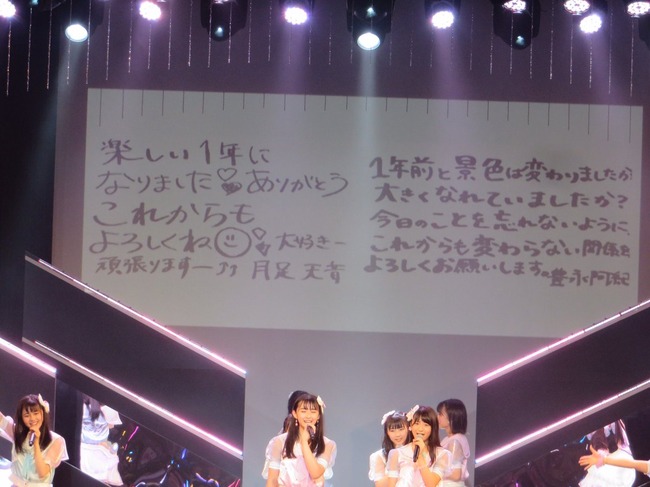 楽しい1年に
なりました♡ありがとう
これからも
よろしくね☺♡大好きー
頑張りますー♪♪ 月足 天音
1年前と景色は変わりましたか
大きくなれていましたか?
今日のことを忘れないように、
これからも変わらない関係で
よろしくお願いします。豊永阿紀